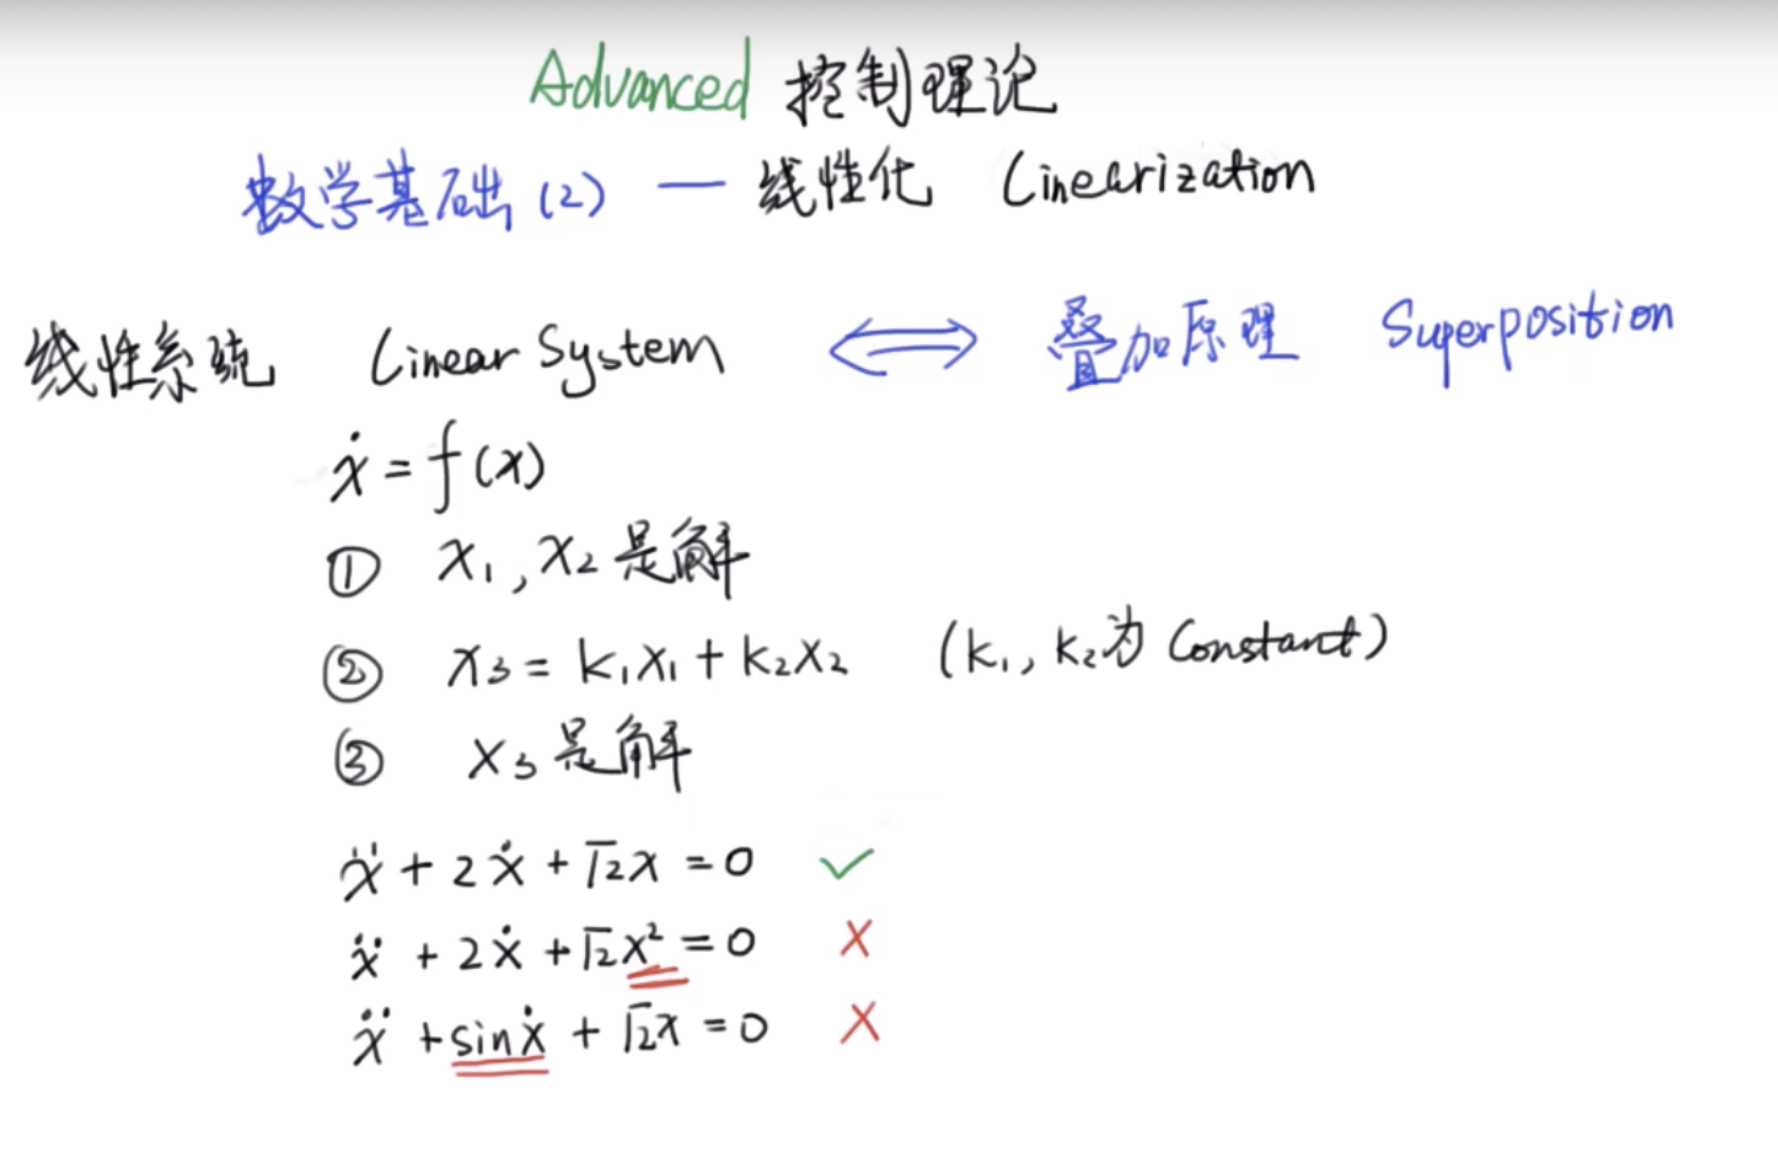 Advanced 控制理论
数学基础(2) — 线性化 Linearization
线性系统 Linear System ⟺ 叠加原理 Superposition
ẋ = f(x)
① x₁, x₂ 是解
② x₃ = k₁x₁ + k₂x₂ (k₁, k₂为 Constant)
③ x₃ 是解
ẍ + 2ẋ + √2x = 0 ✓
ẍ + 2ẋ + √2x² = 0 ✗
ẍ + sinẋ + √2x = 0 ✗